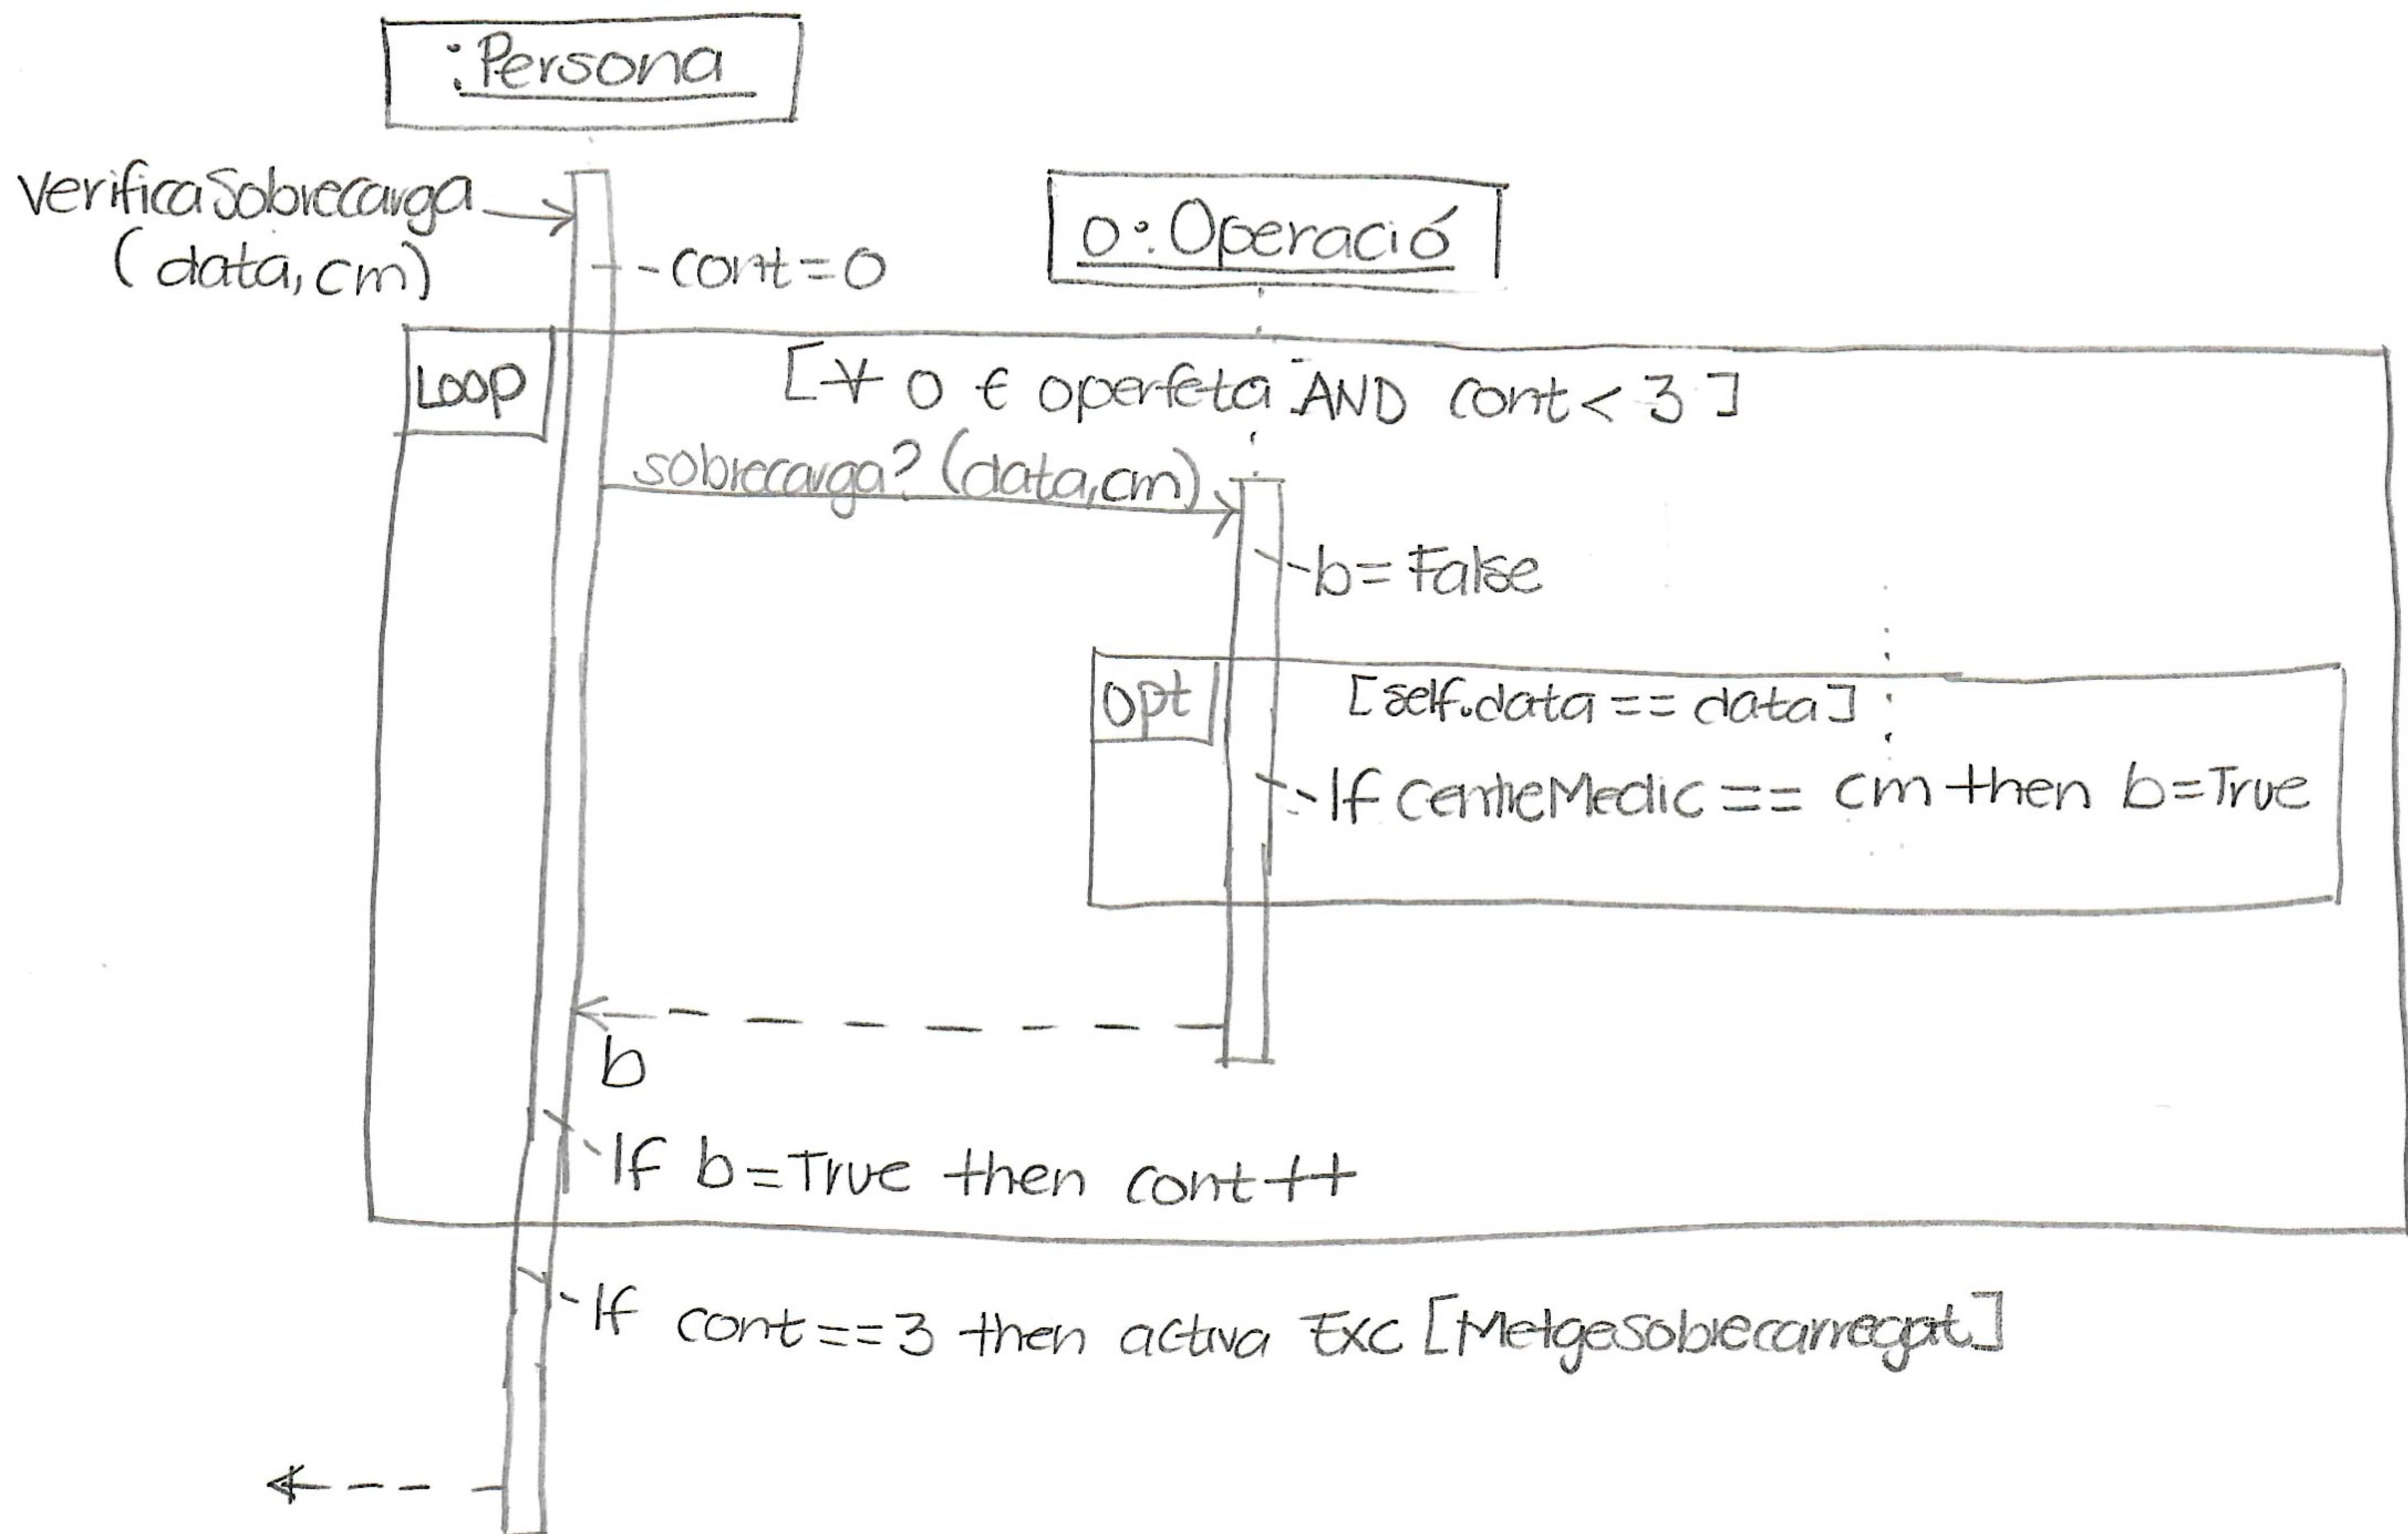 :Persona
verificaSobrecarga
(data,cm)
o:Operació
cont=0
Loop
[∀ o € operfeta AND cont<3]
sobrecarga?(data,cm)
b=False
opt
[self.data==data]
If CentreMedic == cm then b=True
b
If b=True then cont++
If cont==3 then activa Exc [MetgeSobrecarregat]